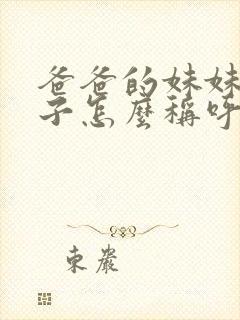 爸爸的妹妹
子怎麼稱呼
束嚴